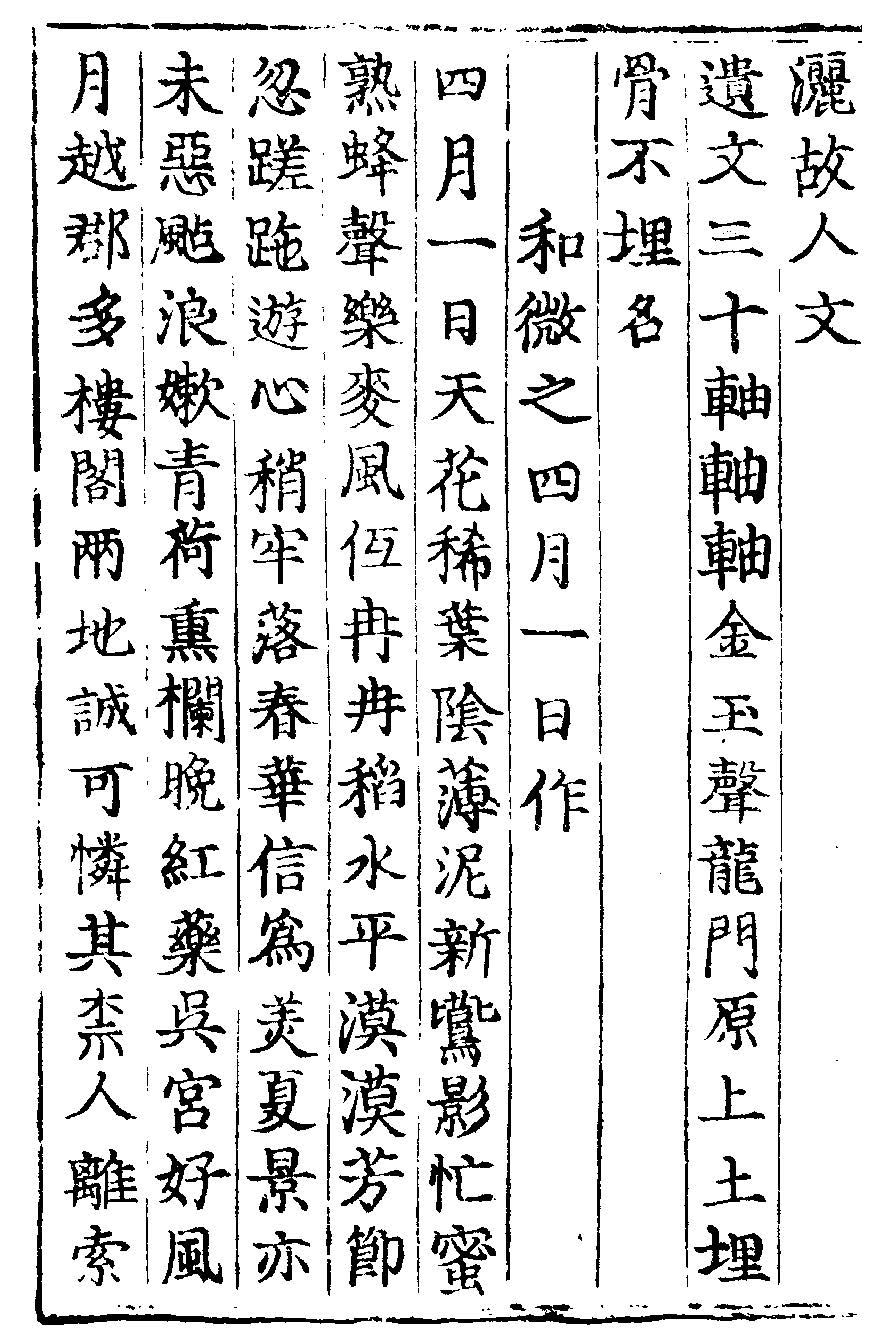 灑故人文
遺文三十軸軸軸金玉聲龍門原上土埋
骨不埋名
和微之四月一日作
四月一日天花稀葉陰薄泥新鷰影忙蜜
熟蜂聲樂麥風仾冉冉稻水平漠漠芳節
忽蹉跎遊心稍牢落春華信爲美夏景亦
未惡颭浪嫩青荷熏欄晚紅藥吳宮好風
月越郡多樓閣兩地誠可憐其柰人離索